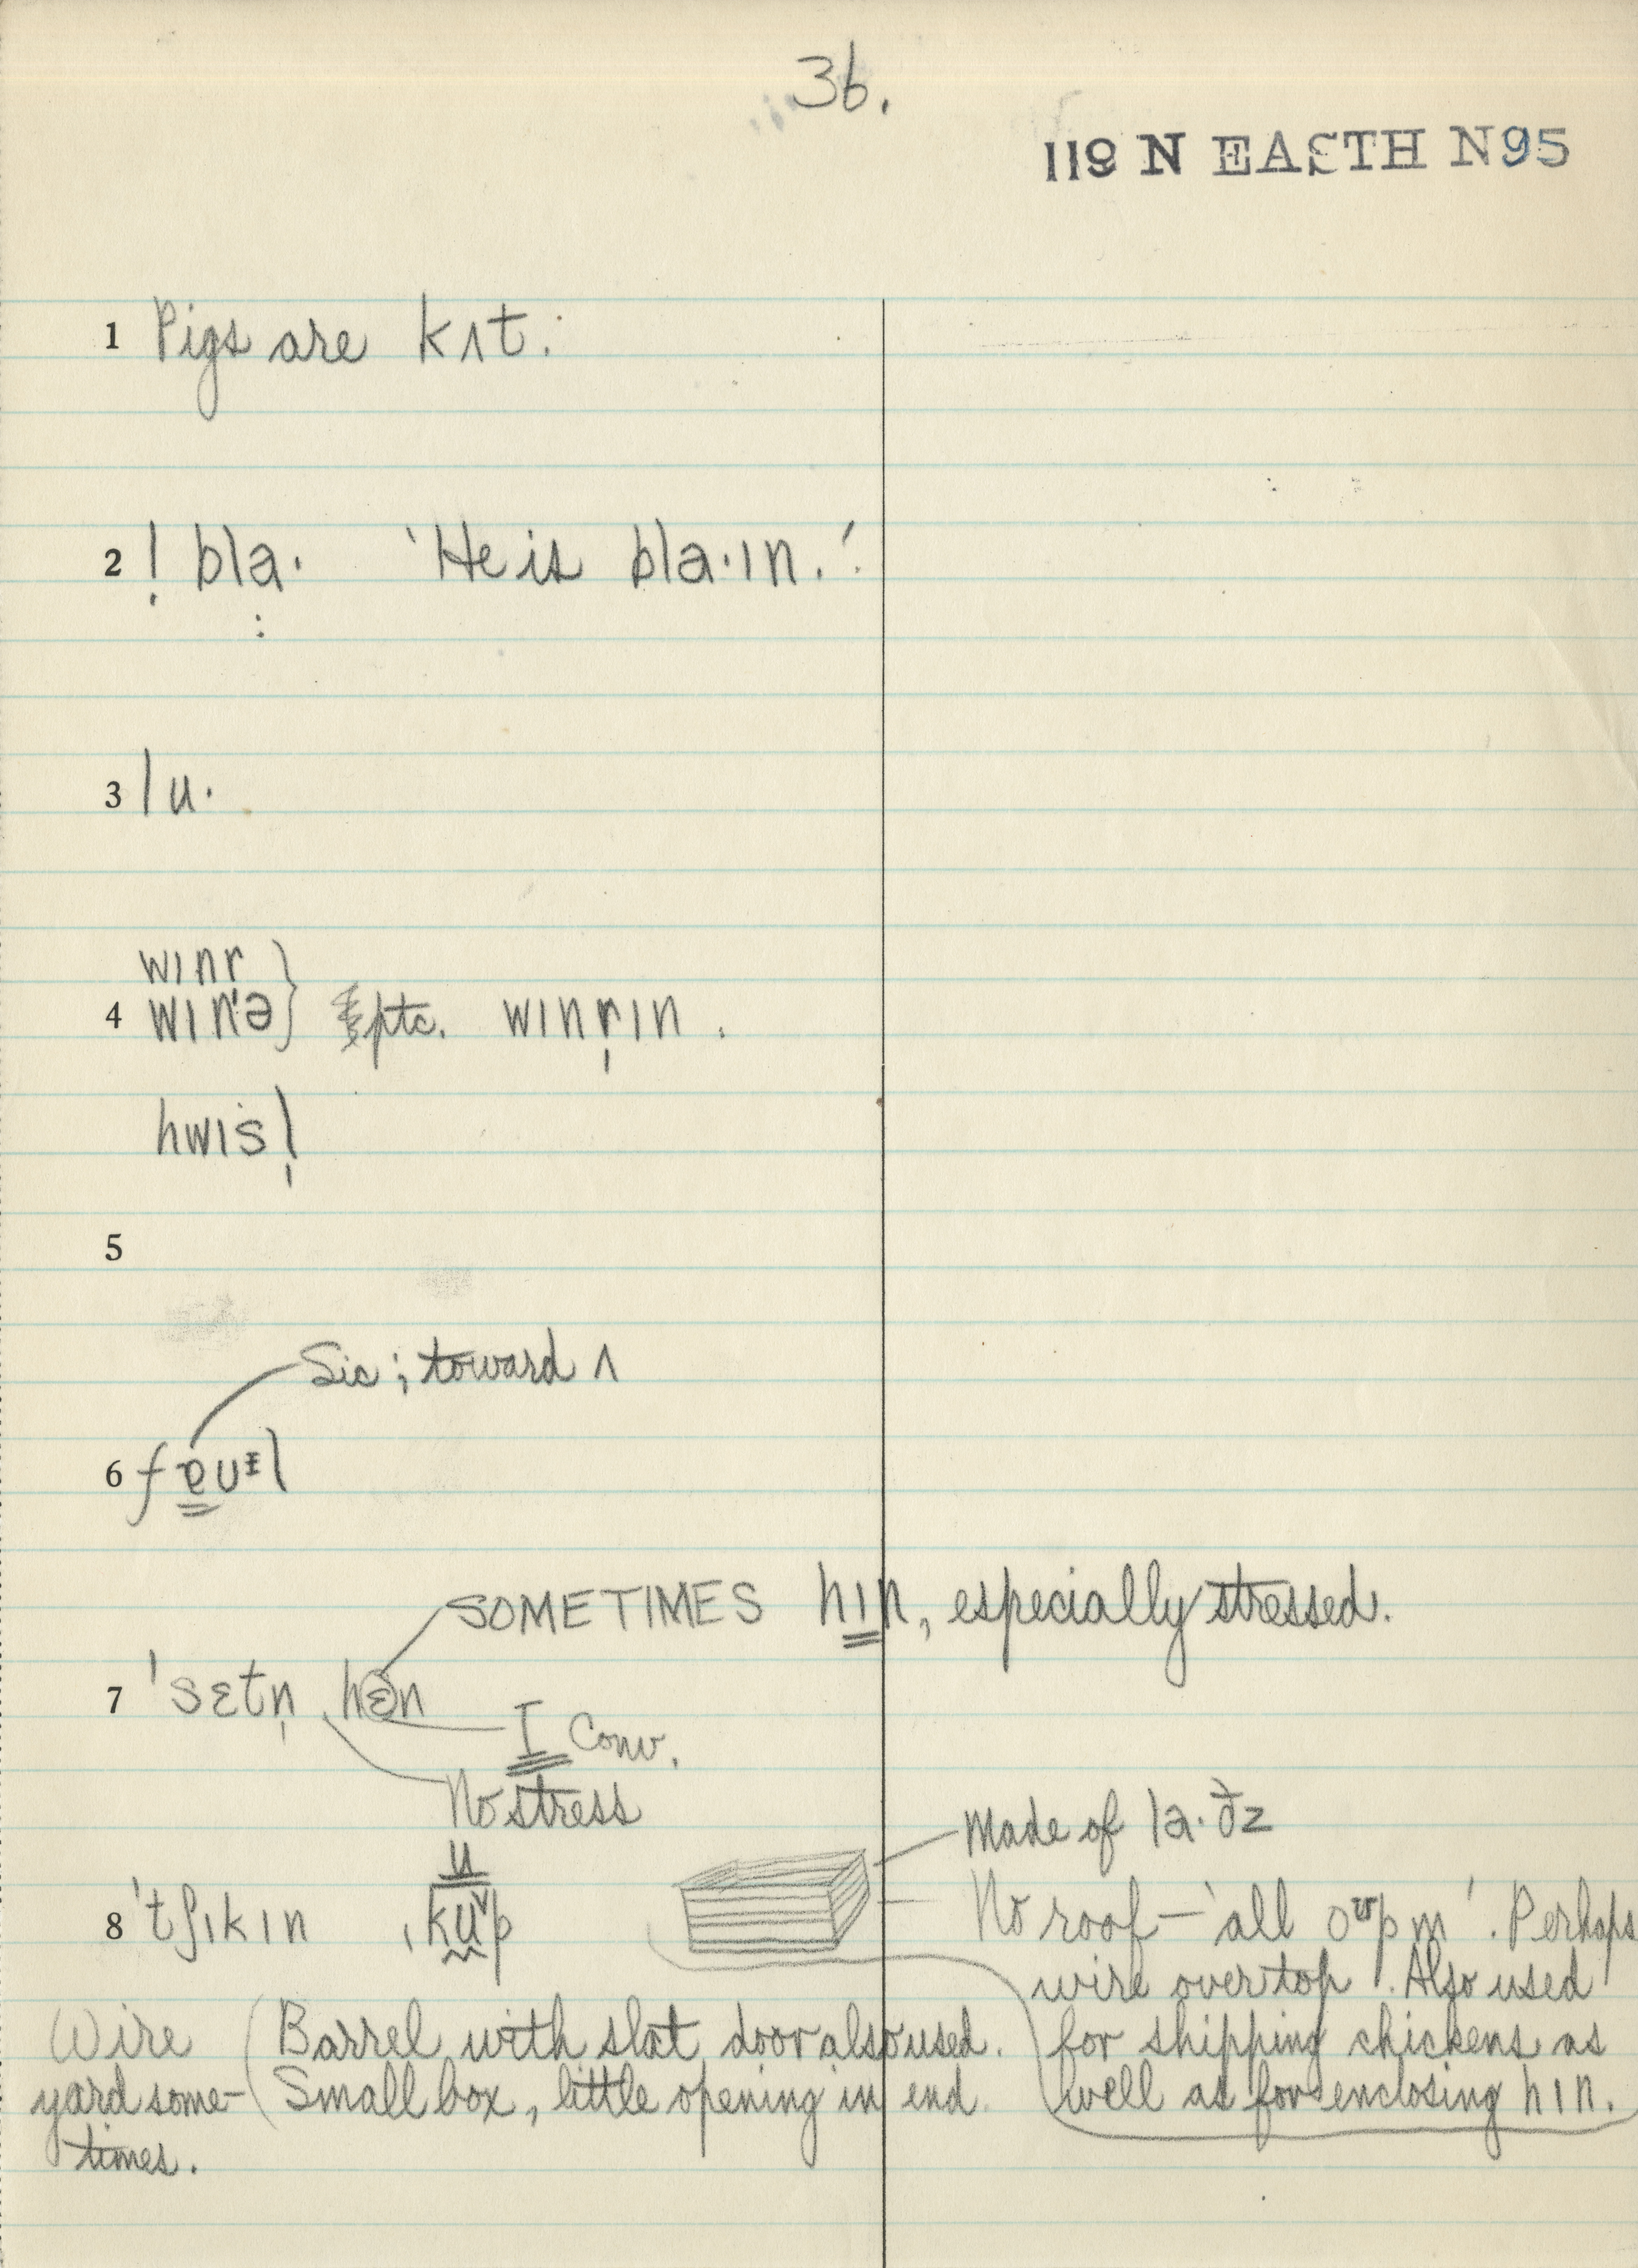 36.
119 N EASTH N95
1 Pigs are kʌt.
2 ! bla· 'He is bla·ɪn.'
3 lu·
wɪnr
4 wɪn'ə } ptc. wɪnr̩ɪn.
hwɪsl̩
5
Sic; toward ʌ
6 fɐuᵻl
SOMETIMES hɪn, especially stressed.
7 'sɛtn̩ hɛn
I Conv.
No stress
Made of la·ðz
u
8 'tʃɪkɪn ˌkup
No roof – 'all oᶷpm̩'. Perhaps
wire over top. Also used
for shipping chickens as
well as for enclosing hɪn.
Wire
yard some-
times.
(Barrel with slat door also used.
Small box, little opening in end.